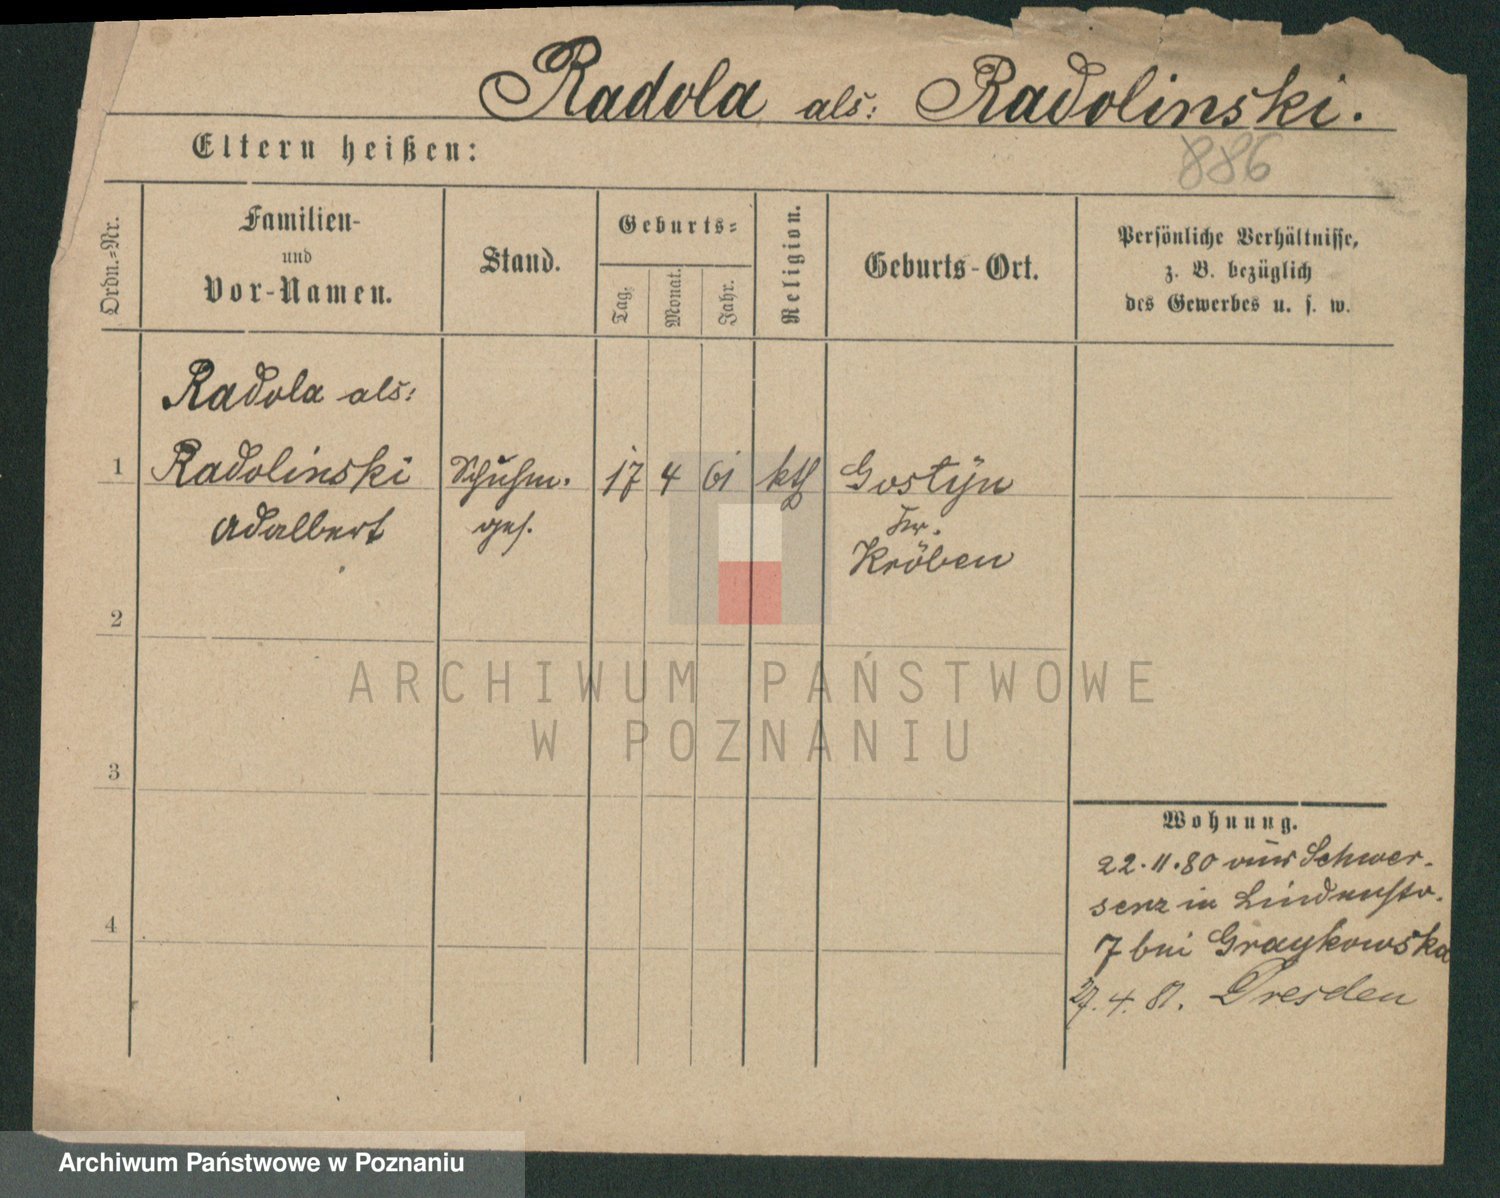 Radola als: Radolinski.
Eltern heißen:
886
Ordn.-Nr.
Familien-
und
Vor-Namen.
Stand.
Geburts-
Tag.
Monat.
Jahr.
Religion.
Geburts-Ort.
Persönliche Verhältnisse,
z. B. bezüglich
des Gewerbes u. s. w.
Radola als:
1 Radolinski Schuhm. 17 4 61 kth Gostÿn
Adalbert ges. Kr.
Kröben
2
ARCHIWUM PAŃSTWOWE
W POZNANIU
3
Wohnung.
22.11.80 aus Schwer-
senz in Lindenstr.
4
7 bei Graykowska
27.4.81. Dresden
Archiwum Państwowe w Poznaniu